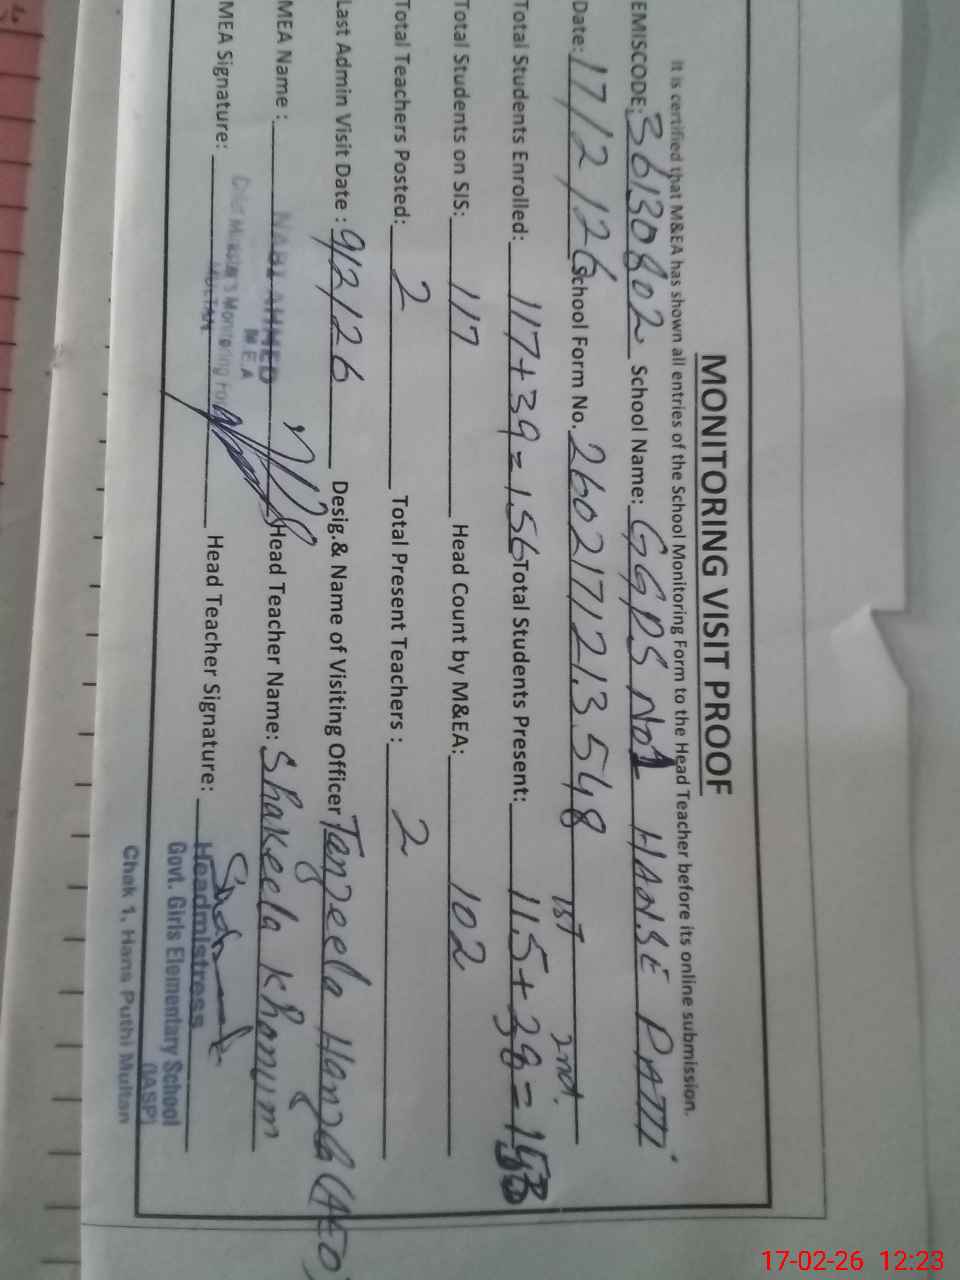 MONITORING VISIT PROOF
It is certified that M&EA has shown all entries of the School Monitoring Form to the Head Teacher before its online submission.
EMISCODE: 36130802 School Name: GGPS No1 HANSE PATTI
Date: 17/2/26 School Form No. 2602171213548
1st 2nd
Total Students Enrolled: 117+39=156 Total Students Present: 115+28=153
Total Students on SIS: 117 Head Count by M&EA: 102
Total Teachers Posted: 2 Total Present Teachers : 2
Last Admin Visit Date : 9/2/26 Desig.& Name of Visiting Officer Tanzeela Hanzla (AEO)
MEA Name : NABI AHMED Head Teacher Name: Shakeela Khonum
MEA
Chief Minister's Monitoring For
MULTAN
MEA Signature: Head Teacher Signature:
Headmistress
Govt. Girls Elementary School
(IASP)
Chak 1, Hans Puthi Multan
17-02-26 12:23